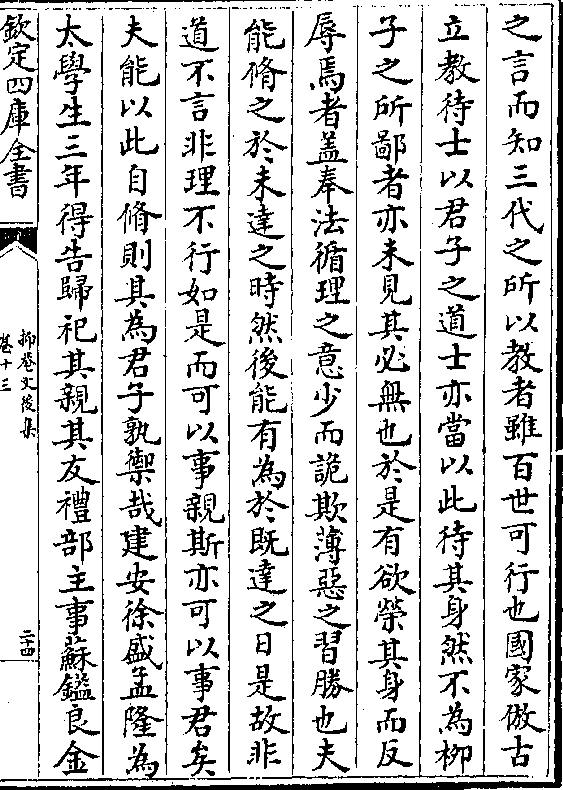 之言而知三代之所以教者雖百世可行也國家倣古
立教待士以君子之道士亦當以此待其身然不為柳
子之所鄙者亦未見其必無也於是有欲榮其身而反
辱焉者盖奉法循理之意少而詭欺薄惡之習勝也夫
能脩之於未達之時然後能有為於既達之日是故非
道不言非理不行如是而可以事親斯亦可以事君矣
夫能以此自脩則其為君子孰禦哉建安徐盛孟隆為
太學生三年得告歸祀其親其友禮部主事蘇鎰良金
欽定四庫全書
抑菴文後集
卷十三
二十四